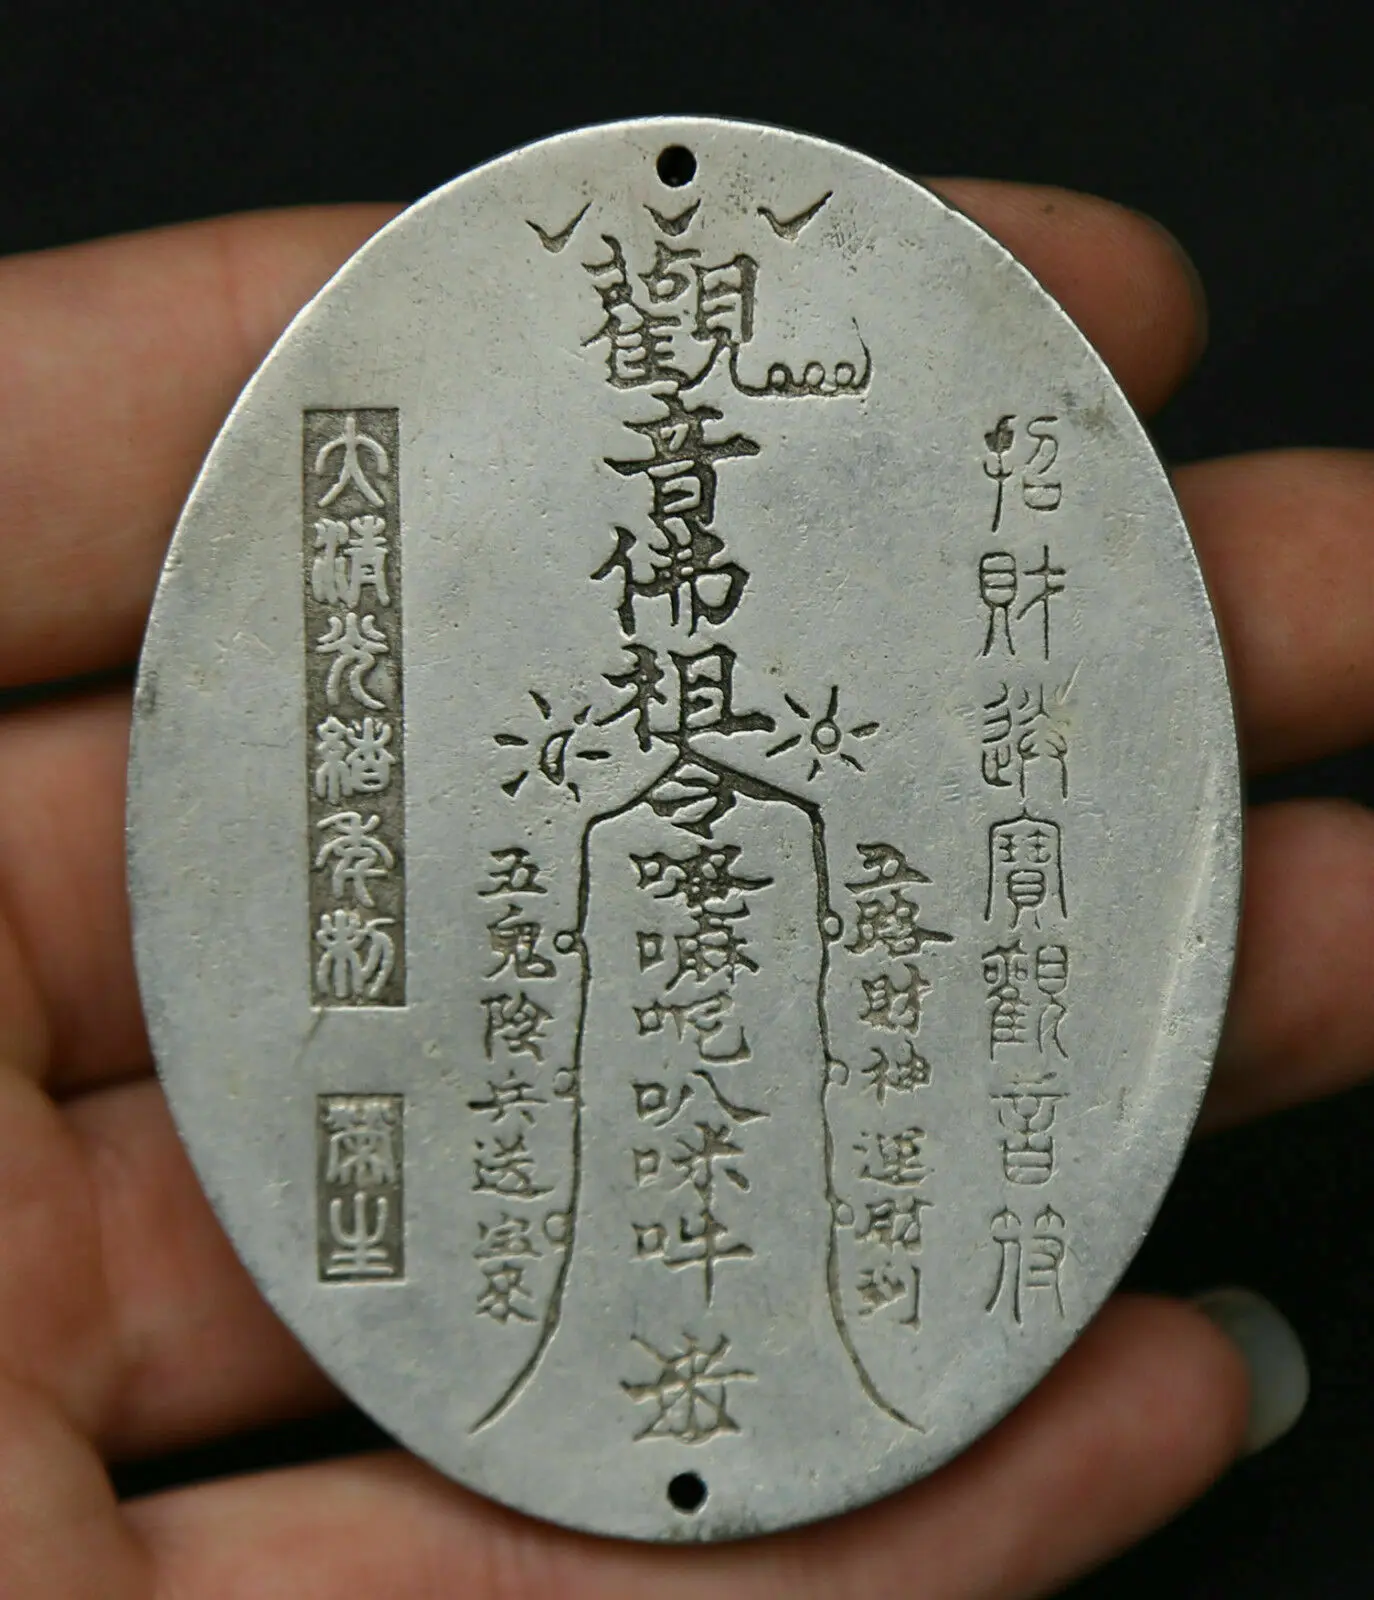 招財送寶觀音符
五路財神運財到
觀音佛祖令
唵嘛呢叭咪吽
五鬼陰兵送宝來
大清光緒年制